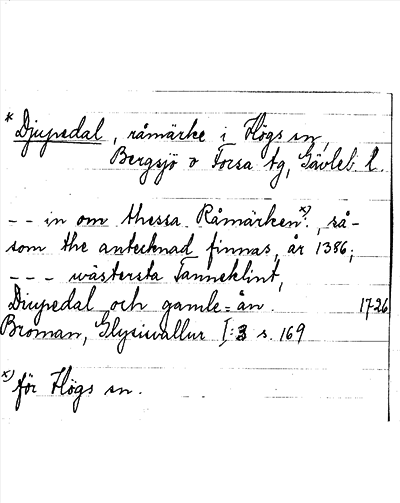 * Djupedal, råmärke i Högs sn,
Bergsjö o Forsa tg, Gävleb. l.
-- in om thessa Råmärken x)., så-
som the antecknad finnas, år 1386;
--- wästersta Tanneklint,
Diupedal och gamle=ån. 1726
Broman, Glysisvallur I:3 s. 169
x) för Högs sn.